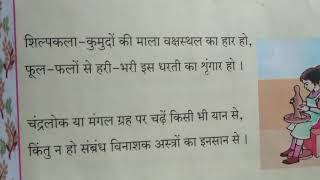 शिल्पकला-कुमुदों की माला वक्षस्थल का हार हो,
फूल-फलों से हरी-भरी इस धरती का शृंगार हो ।
चंद्रलोक या मंगल ग्रह पर चढ़ें किसी भी यान से,
किंतु न हो संबंध विनाशक अस्त्रों का इनसान से ।